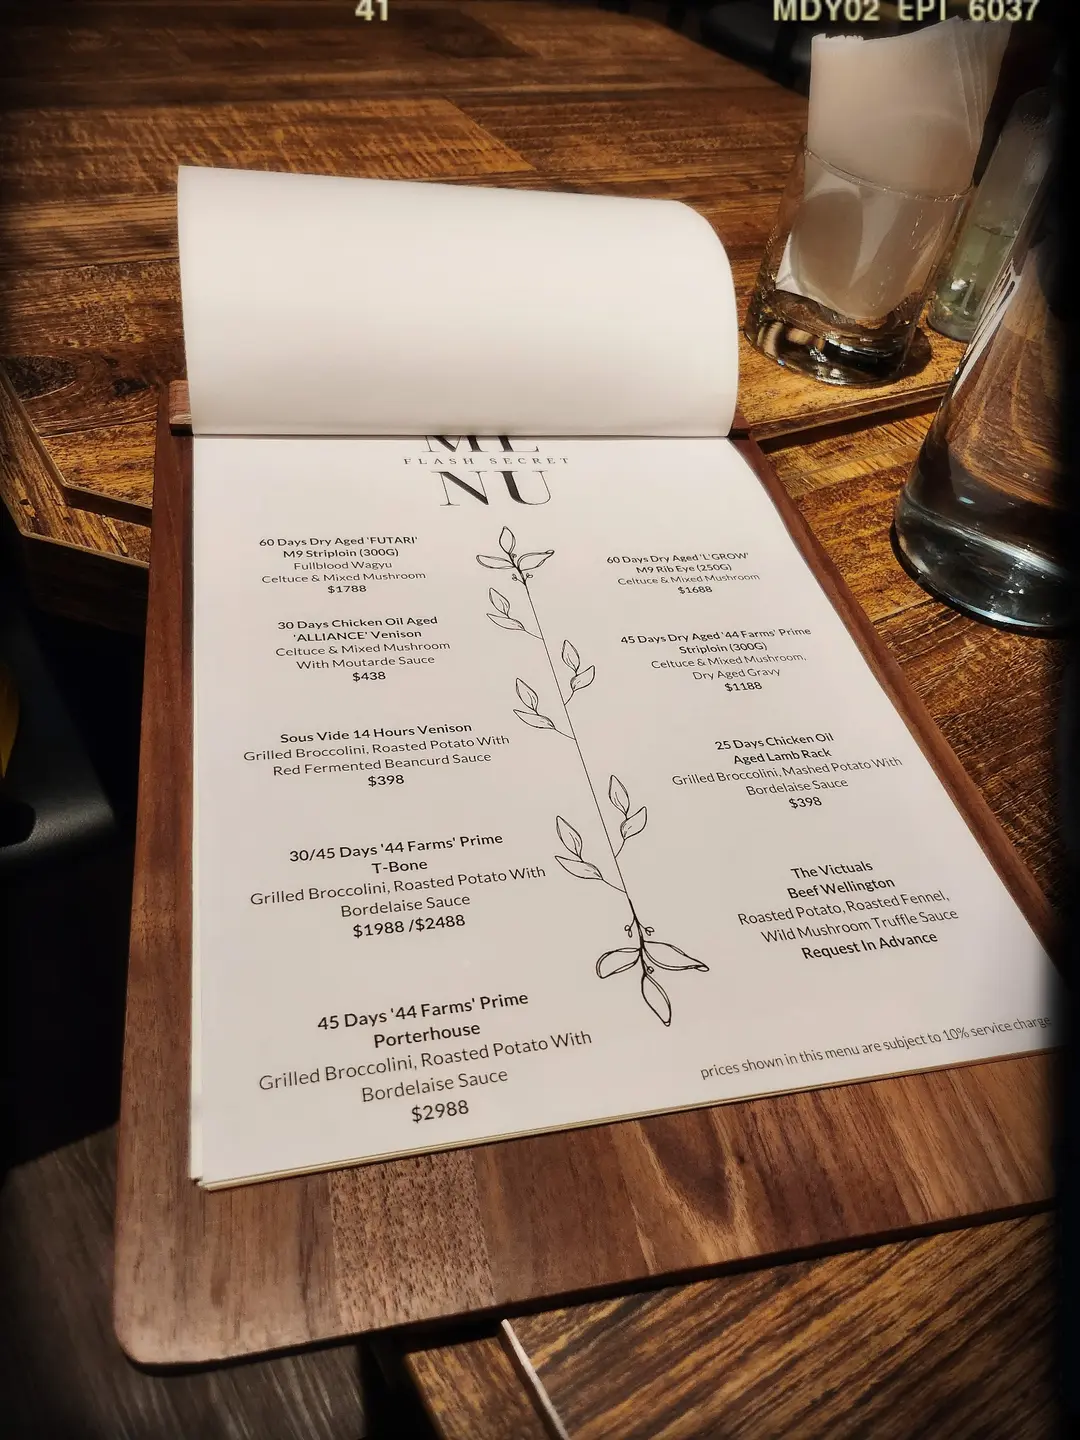 41
MDY02 EPT 6037
ME
FLASH SECRET
NU
60 Days Dry Aged 'FUTARI'
M9 Striploin (300G)
Fullblood Wagyu
Celtuce & Mixed Mushroom
$1788
30 Days Chicken Oil Aged
'ALLIANCE' Venison
Celtuce & Mixed Mushroom
With Moutarde Sauce
$438
Sous Vide 14 Hours Venison
Grilled Broccolini, Roasted Potato With
Red Fermented Beancurd Sauce
$398
30/45 Days '44 Farms' Prime
T-Bone
Grilled Broccolini, Roasted Potato With
Bordelaise Sauce
$1988 /$2488
45 Days '44 Farms' Prime
Porterhouse
Grilled Broccolini, Roasted Potato With
Bordelaise Sauce
$2988
60 Days Dry Aged 'L'GROW'
M9 Rib Eye (250G)
Celtuce & Mixed Mushroom
$1688
45 Days Dry Aged '44 Farms' Prime
Striploin (300G)
Celtuce & Mixed Mushroom,
Dry Aged Gravy
$1188
25 Days Chicken Oil
Aged Lamb Rack
Grilled Broccolini, Mashed Potato With
Bordelaise Sauce
$398
The Victuals
Beef Wellington
Roasted Potato, Roasted Fennel,
Wild Mushroom Truffle Sauce
Request In Advance
prices shown in this menu are subject to 10% service charge